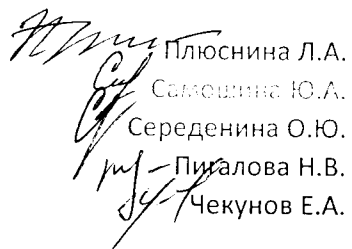 Плюснина Л.А.
Самошина Ю.А.
Середенина О.Ю.
Пигалова Н.В.
Чекунов Е.А.